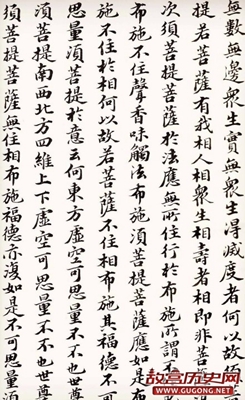 無數無邊衆生實無衆生得滅度者何以故須
提若菩薩有我相人相衆生相壽者相即非菩
次須菩提菩薩於法應無所住行於布施所謂
布施不住聲香味觸法布施須菩提菩薩應如是布
施不住於相何以故若菩薩不住相布施其福德不可
思量須菩提於意云何東方虛空可思量不不也世尊
須菩提南西北方四維上下虛空可思量不不也世尊
須菩提菩薩無住相布施福德亦復如是不可思量須
故宫历史网
www.GUGONG.net